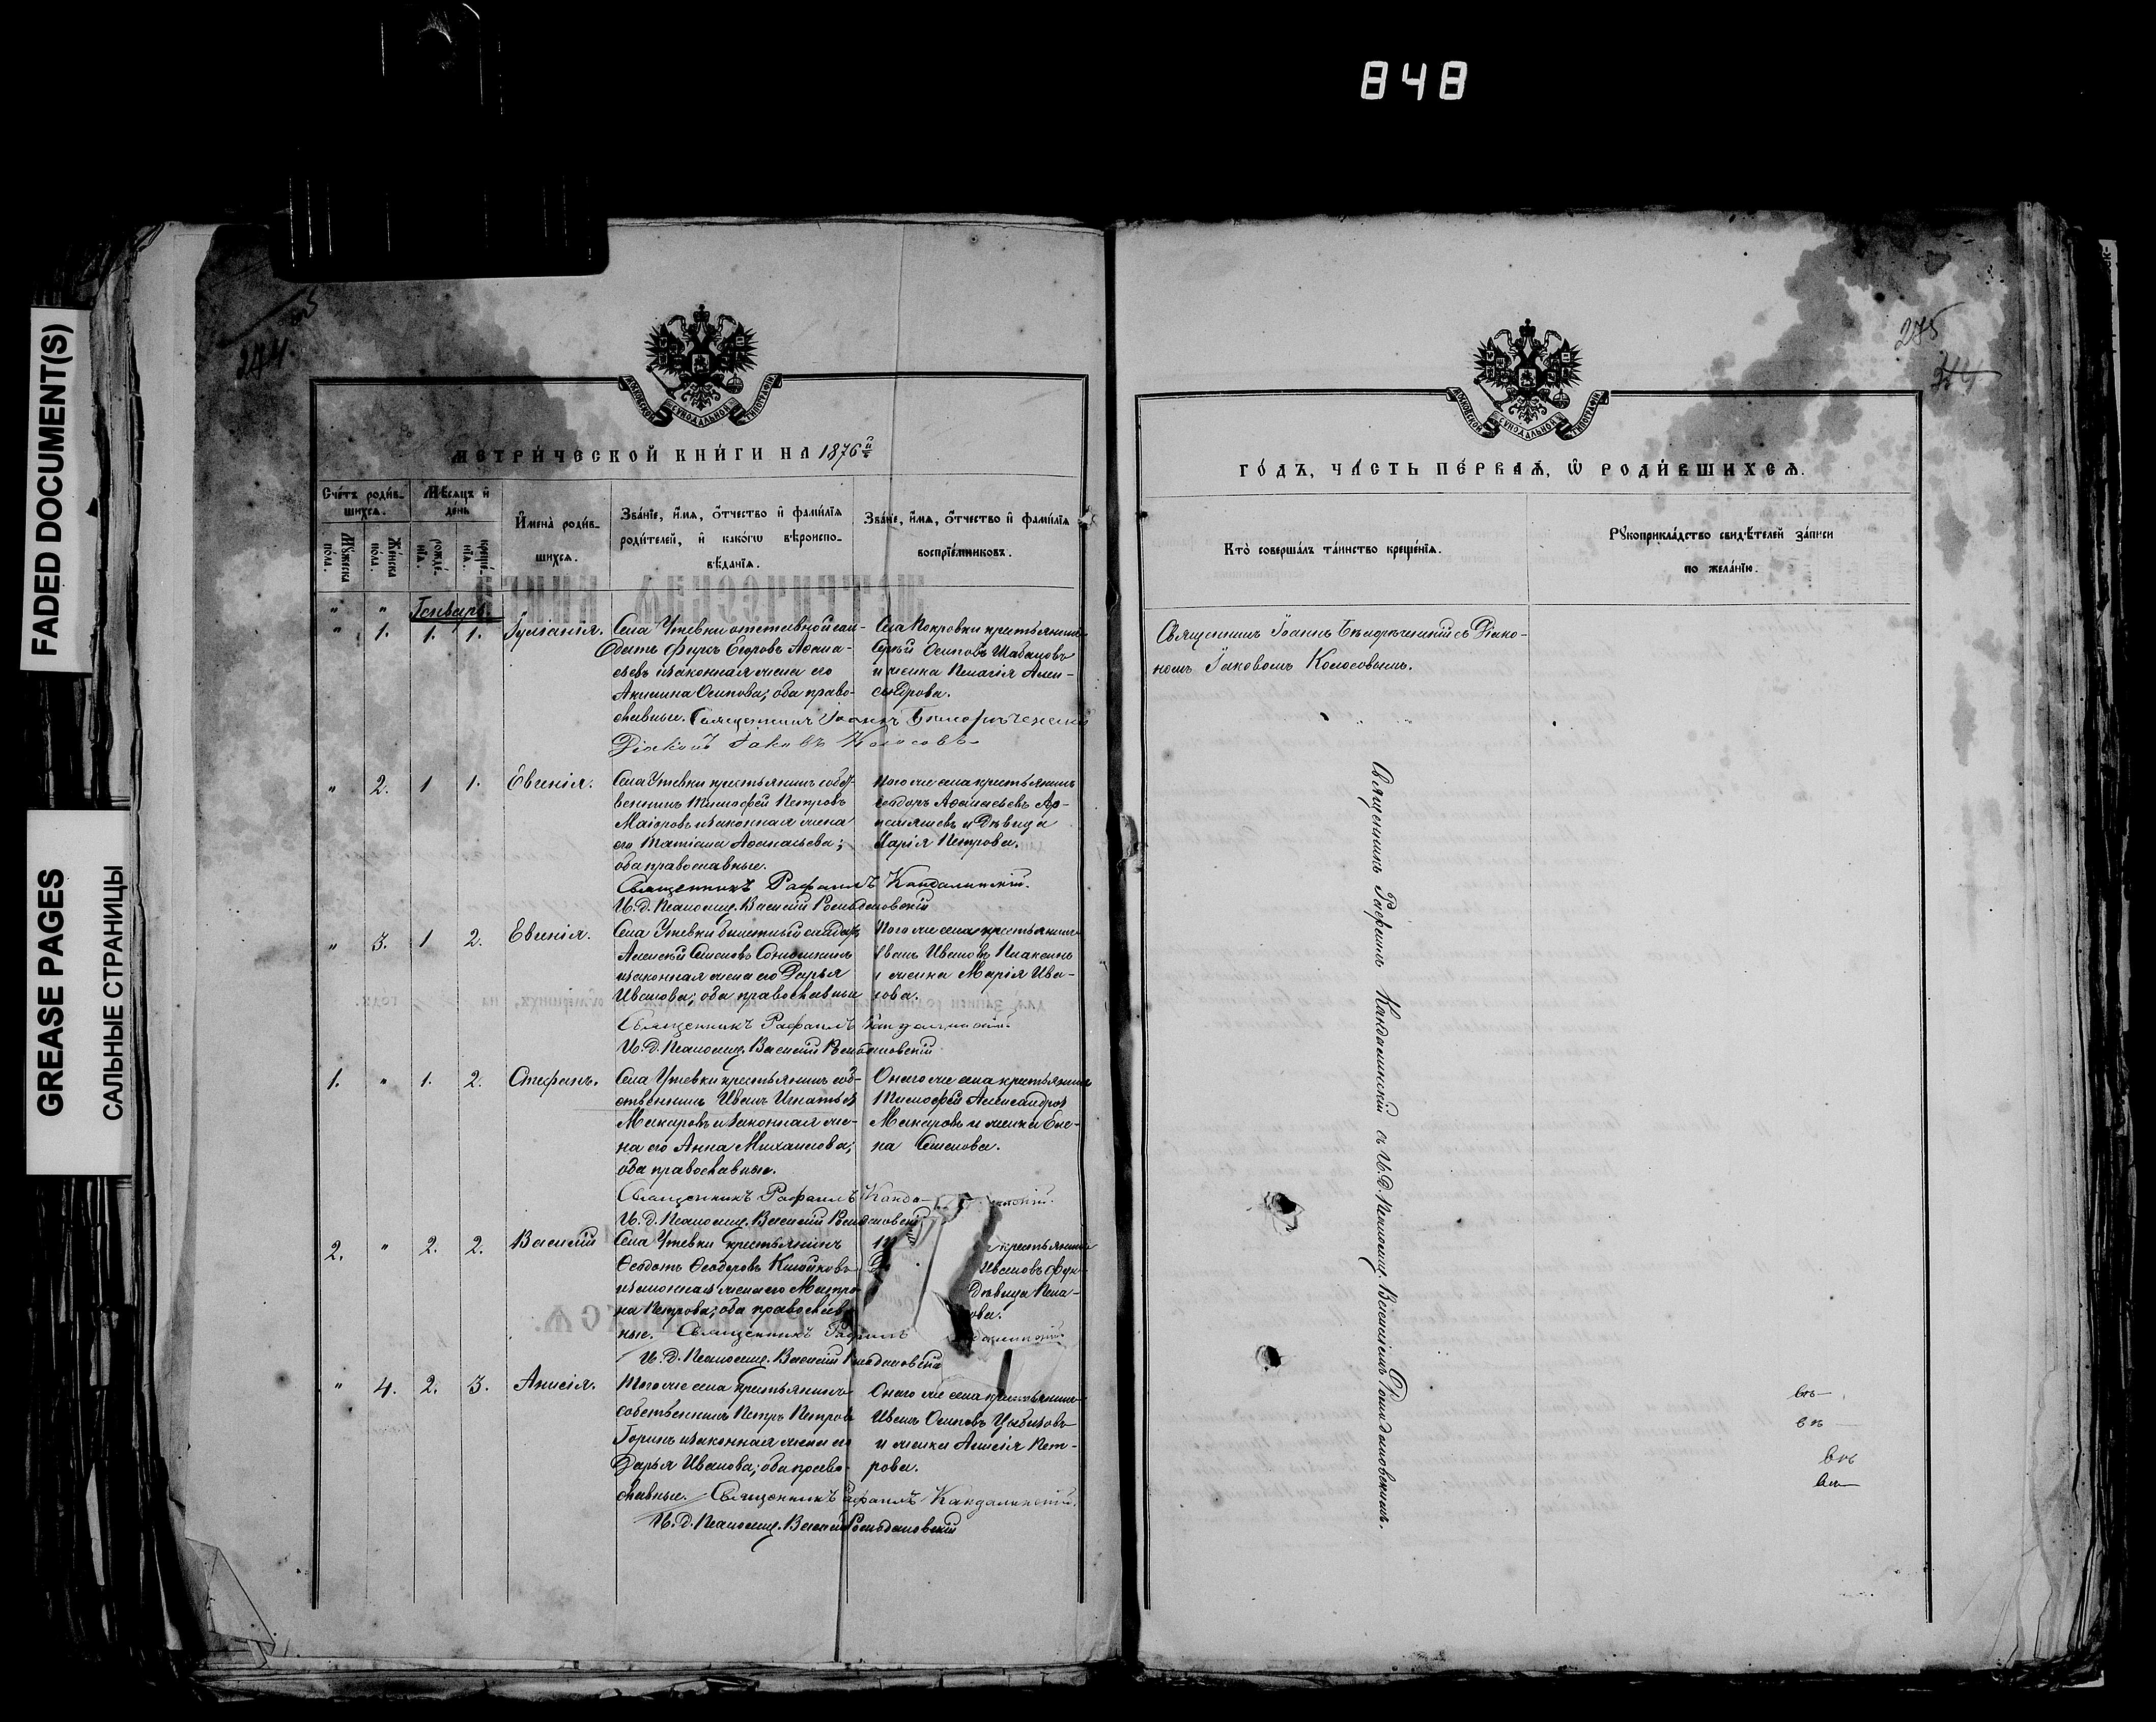 848
FADED DOCUMENT(S)
GREASE PAGES
САЛЬНЫЕ СТРАНИЦЫ
274.
МОСКОВСКОЙ СѴНОДАЛЬНОЙ ТИПОГРАФІИ
МЕТРИ́ЧЕСКОЙ КНИ́ГИ НА 1876й
Сче́тъ роди́в-
шихся.
Мѣ́сяцъ и҆
де́нь
Мꙋ́жеска
по́ла.
Же́нска
по́ла.
рожде́-
нїѧ.
креще́-
нїѧ.
И҆мена̀ роди́в-
шихсѧ.
Зва́нїе, и҆́мѧ, ѻ҆́тчество и҆ фами́лїѧ
роди́телей, и҆ како́гѡ вѣроиспо-
вѣ́данїѧ.
Зва́нїе, и҆́мѧ, ѻ҆́тчество и҆ фами́лїѧ
воспрїе́мниковъ.
" " Генварь.
" 1. 1. 1. Іуліанія.
Села Утевки отставной сол-
датъ Фирсъ Егоровъ Аѳана-
сьевъ и законная жена его
Акилина Осипова; оба право-
славные. Священникъ Іоаннъ Бѣлорѣченскій
Діаконъ Іаковъ Колосовъ
Села Покровки крестьянинъ
Сергѣй Осиповъ Шабановъ
и женка Пелагія Алек-
сандрова.
" 2. 1 1. Евгенія.
Села Утевки крестьянинъ собст-
венникъ Тимоѳей Петровъ
Маіоровъ и законная жена
его Татіана Аѳанасьева;
оба православные.
Священникъ Рафаилъ Кандалинскій.
И. д. Псаломщ. Василій Ромодановскій
Того же села крестьянинъ
Ѳеодоръ Аѳанасьевъ
и дѣвица
Марія Петрова.
" 3. 1 2. Евгенія.
Села Утевки билетный солдатъ
Алексѣй Семеновъ
и законная жена его Дарья
Иванова; оба православные
Священникъ Рафаилъ Кандалинскій.
И. д. Псаломщ. Василій Ромодановскій
Того же села крестьянинъ
Иванъ Ивановъ Плаксинъ
и женка Марія Ива-
нова.
1. " 1. 2. Стефанъ.
Села Утевки крестьянинъ соб-
ственникъ Иванъ Игнатьев
Макаровъ и законная же-
на его Анна Михаилова;
оба православные.
Священникъ Рафаилъ Кандалинскій.
И. д. Псаломщ. Василій Ромодановскій
Онаго же села крестьянинъ
Тимоѳей Александров
Макаровъ и женка Еле-
на Семенова.
2. " 2. 2. Василій
Села Утевки крестьянинъ
Ѳеодотъ Ѳеодоровъ Клюйковъ
и законная жена его Матро-
на Петрова; оба православ-
ные. Священникъ Рафаилъ
И. д. Псаломщ. Василій Ромодановскій
крестьянинъ
Ивановъ
дѣвица Пела-
ова.
" 4. 2. 3. Анисія.
Того же села крестьянинъ
собственникъ Петръ Петровъ
Горинъ и законная жена его
Дарья Иванова; оба право-
славные. Священникъ Рафаилъ Кандалинскій.
И. д. Псаломщ. Василій Ромодановскій
Онаго же села крестьянинъ
Иванъ Осиповъ Цыбизовъ
и женка Анисія Пет-
рова.
275
274
МОСКОВСКОЙ СѴНОДАЛЬНОЙ ТИПОГРАФІИ
ГО́ДЪ, ЧА́СТЬ ПЕ́РВАѦ, Ѡ҆ РОДИ́ВШИХСѦ.
Кто̀ соверша́лъ та́инство креще́нїѧ.
Рꙋкоприкла́дство свидѣ́телей за́писи
по жела́нїю.
Священникъ Іоаннъ Бѣлорѣченскій съ Діако-
номъ Іаковомъ Колосовымъ.
Священникъ Рафаилъ Кандалинскій съ И. д. Псаломщ. Василіемъ Ромодановскимъ.